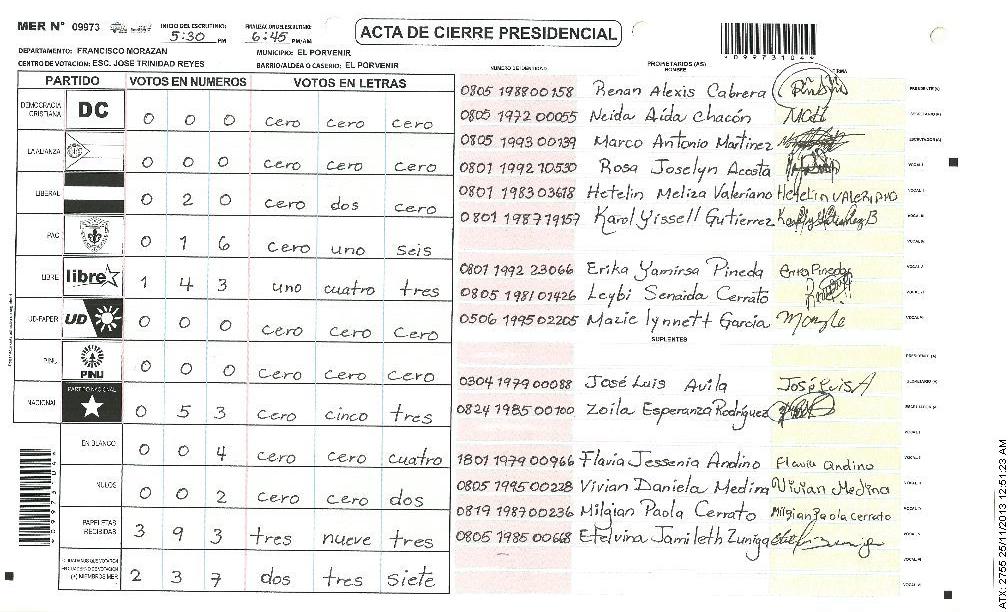 MER N° 09973 INICIO DEL ESCRUTINIO: 5:30 PM FINALIZACION DEL ESCRUTINIO: 6:45 PM/AM ACTA DE CIERRE PRESIDENCIAL
*09973104*
DEPARTAMENTO: FRANCISCO MORAZAN MUNICIPIO: EL PORVENIR
CENTRO DE VOTACION: ESC. JOSE TRINIDAD REYES BARRIO/ALDEA O CASERIO: EL PORVENIR
PARTIDO VOTOS EN NUMEROS VOTOS EN LETRAS
DEMOCRACIA CRISTIANA DC 0 0 0 cero cero cero
LA ALIANZA 0 0 0 cero cero cero
LIBERAL 0 2 0 cero dos cero
PAC 0 1 6 cero uno seis
LIBRE libre 1 4 3 uno cuatro tres
UD-FAPER UD 0 0 0 cero cero cero
PINU PINU 0 0 0 cero cero cero
NACIONAL PARTIDO NACIONAL 0 5 3 cero cinco tres
EN BLANCO 0 0 4 cero cero cuatro
NULOS 0 0 2 cero cero dos
PAPELETAS RECIBIDAS 3 9 3 tres nueve tres
(+) MIEMBROS MER 2 3 7 dos tres siete
*09973104*
NUMERO DE IDENTIDAD PROPIETARIOS (AS) NOMBRE FIRMA
0805 1988 00158 Renan Alexis Cabrera PRESIDENTE (A)
0805 1972 00055 Neida Aída Chacón SECRETARIO (A)
0805 1993 00139 Marco Antonio Martinez ESCRUTADOR (A)
0801 1992 10530 Rosa Joselyn Acosta VOCAL I
0801 1983 03618 Hetelin Meliza Valeriano Hetelin VALERIANO VOCAL II
0801 1987 19157 Karol Yissell Gutierrez VOCAL III
VOCAL IV
0801 1992 23066 Erika Yamirsa Pineda Erika Pineda VOCAL V
0805 1981 01426 Leybi Senaida Cerrato
0506 1995 02205 Mazie lynnett Garcia
SUPLENTES
PRESIDENTE (A)
0304 1979 00088 José Luis Avila José Luis A SECRETARIO (A)
0824 1985 00100 Zoila Esperanza Rodríguez ESCRUTADOR (A)
VOCAL I
1801 1979 00966 Flavia Jessenia Andino Flavia Andino
0805 1995 00228 Vivian Daniela Medina Vivian Medina
0819 1987 00236 Milgian Paola Cerrato Milgian Paola cerrato
0805 1985 00668 Etelvina Jamileth Zuniga
ATX: 2755 25/11/2013 12:51:23 AM